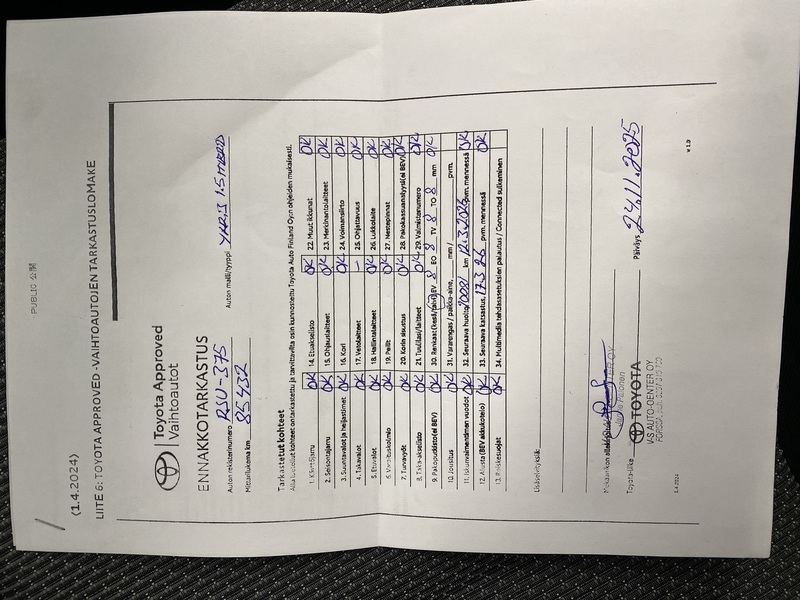 PUBLIC 公開
(1.4.2024)
LIITE 6: TOYOTA APPROVED -VAIHTOAUTOJEN TARKASTUSLOMAKE
Toyota Approved
Vaihtoautot
ENNAKKOTARKASTUS
Auton rekisterinumero RSU-375 Auton malli/tyyppi YARIS 1.5 HYBRID
Mittarilukema km 85432
Tarkastetut kohteet
Alla luetellut kohteet on tarkastettu ja tarvittavilta osin kunnostettu Toyota Auto Finland Oy:n ohjeiden mukaisesti.
1. Käsijarru OK 14. Etuakselisto OK 22. Muut ikkunat OK
2. Seisontajarru OK 15. Ohjauslaitteet OK 23. Merkinantolaitteet OK
3. Suuntavalot ja heijastimet OK 16. Kori OK 24. Voimansiirto OK
4. Takavalot OK 17. Vetolaitteet – 25. Ohjattavuus OK
5. Etuvalot OK 18. Hallintalaitteet OK 26. Lukkolaite OK
OK 19. Peilit OK 27. Nestepinnat OK
7. Turvavyöt OK 20. Korin sisustus OK 28. Pakokaasuanalyysi (ei BEV) OK
8. Taka-akselisto OK 21. Tuulilasi/laitteet OK 29. Valmistenumero OK
9. Pakoputkisto (ei BEV) OK 30. Renkaat (kesä/talvi) EV 8 EO 8 TV 8 TO 8 mm OK
10. Jousitus OK 31. Vararengas / paikka-aine, mm / pvm.
11. Iskunvaimentimen vuodot OK 32. Seuraava huolto km 12.3.2026 pvm. mennessä OK
12. Alusta (BEV akkukotelo) OK 33. Seuraava katsastus, 17.3.26 pvm. mennessä OK
13. Roiskesuojat OK 34. Multimedia tehdasasetuksien palautus / Connected sulkeminen
Lisäselvityksiä:
Mekaanikon allekirjoitus
Toyota-liike TOYOTA Päiväys 24.11.2025
V-S AUTO-CENTER OY
v 1.0